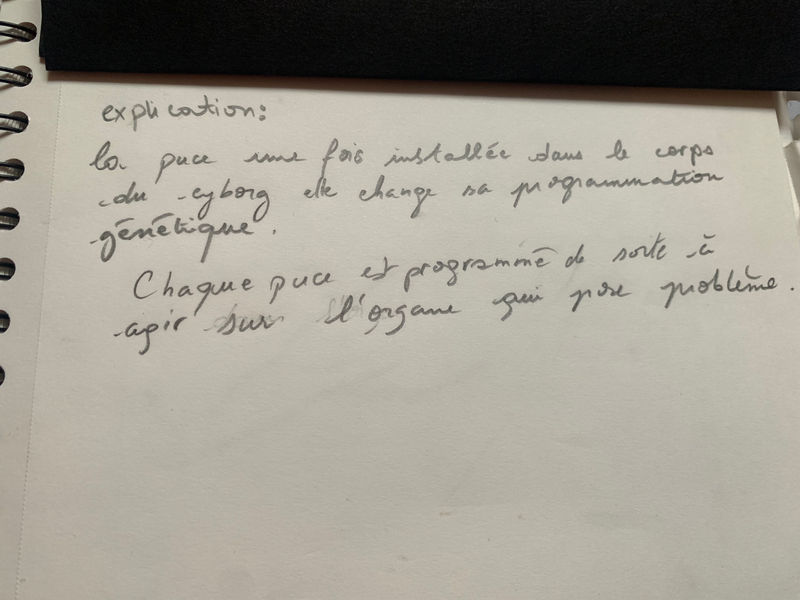 explication:
la puce une fois installée dans le corps
du cyborg elle change sa programmation
génétique.
Chaque puce est programmé de sorte à
agir sur l'organe qui pose problème.